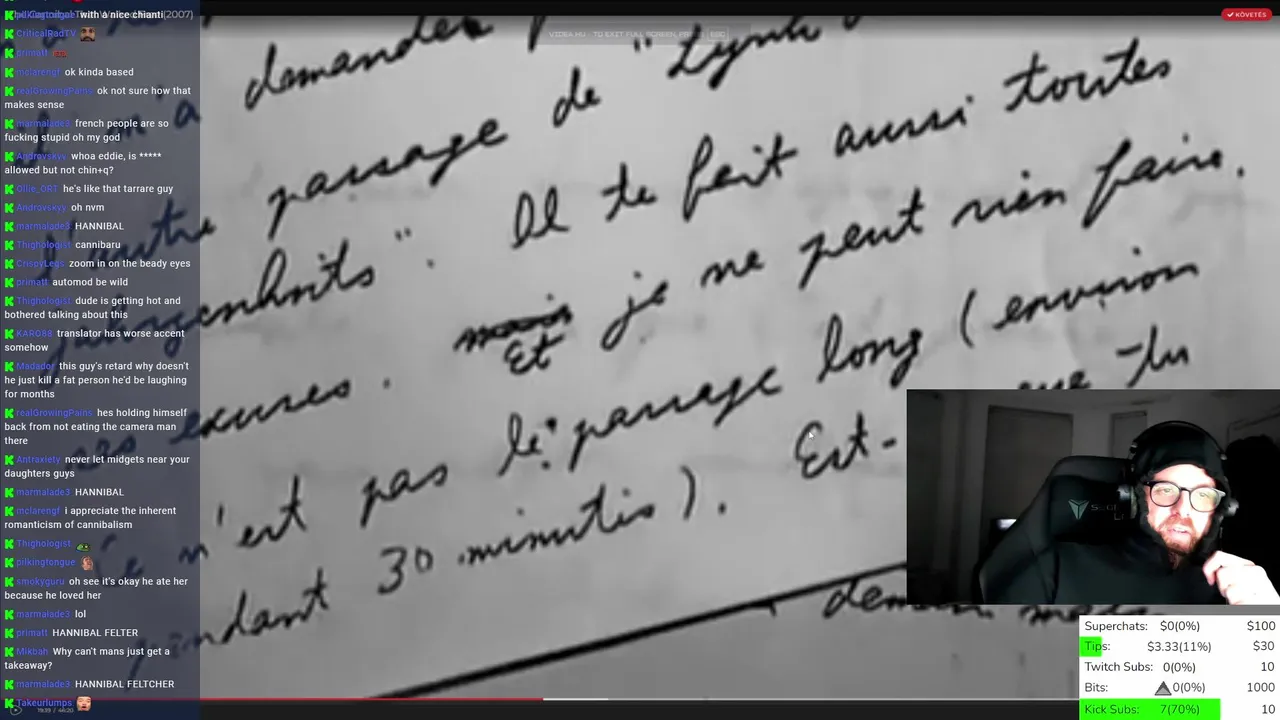 with a nice chianti
(2007)
CriticalRadTV
primatt
mclarengf ok kinda based
realGrowingPains ok not sure how that
makes sense
marmalade3 french people are so
fucking stupid oh my god
Androvskyy whoa eddie, is *****
allowed but not chin+q?
Ollie_ORT he's like that tarrare guy
Androvskyy oh nvm
marmalade3 HANNIBAL
Thighologist cannibaru
CrispyLegs zoom in on the beady eyes
primatt automod be wild
Thighologist dude is getting hot and
bothered talking about this
KARO88 translator has worse accent
somehow
Madador this guy's retard why doesn't
he just kill a fat person he'd be laughing
for months
realGrowingPains hes holding himself
back from not eating the camera man
there
Antraxiety never let midgets near your
daughters guys
marmalade3 HANNIBAL
mclarengf i appreciate the inherent
romanticism of cannibalism
Thighologist
pilkingtongue
smokyguru oh see it's okay he ate her
because he loved her
marmalade3 lol
primatt HANNIBAL FELTER
Mikbah Why can't mans just get a
takeaway?
marmalade3 HANNIBAL FELTCHER
Takeurlumps
VIDEA.HU - TO EXIT FULL SCREEN, PRESS ESC
KÖVETÉS
demander
passage de "Lynch
". Il te fait aussi toutes
excuses. mais Et je ne peut rien faire.
n'est pas le passage long (environ
pendant 30 minutes). Est-
que tu
Superchats: $0(0%) $100
Tips: $3.33(11%) $30
Twitch Subs: 0(0%) 10
Bits: 0(0%) 1000
Kick Subs: 7(70%) 10